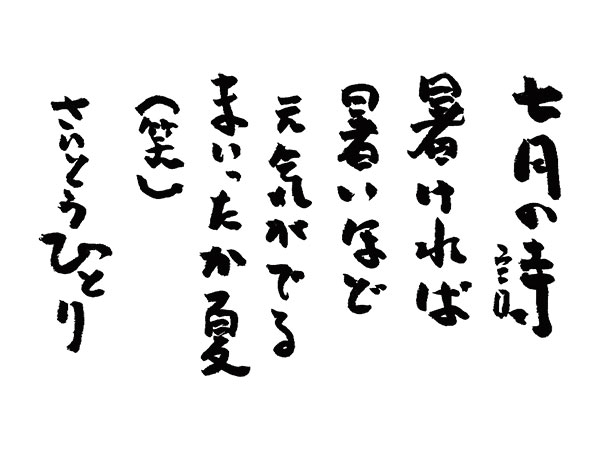 七月の詩
暑ければ
暑いほど
元気がでる
まいったか夏
（笑）
さいとうひとり